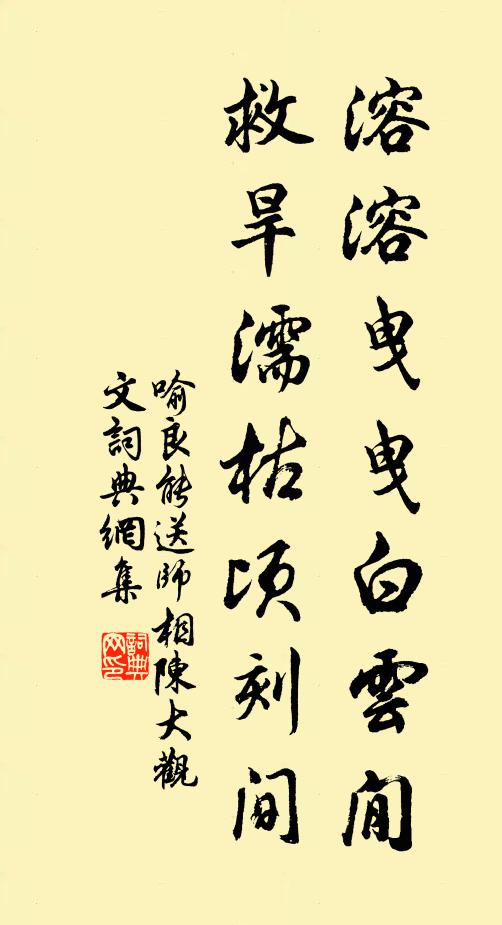 溶溶曳曳白雲閒
救旱濡枯頃刻間
喻良能送師相陳大觀
文詞典網集
詞典網印